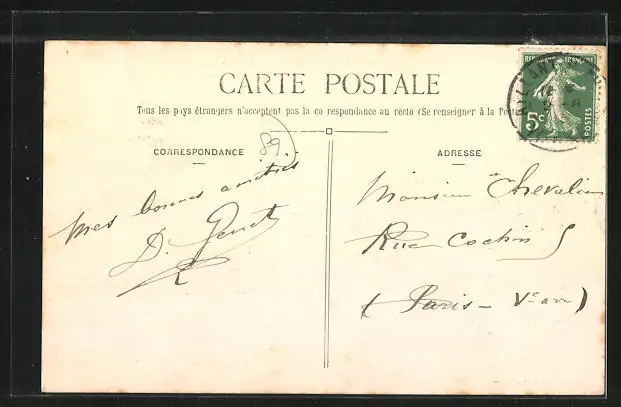 CARTE POSTALE
Tous les pays étrangers n'acceptent pas la co respondance au recto (Se renseigner à la Poste
REPUBLIQUE FRANÇAISE
5c
POSTES
89
CORRESPONDANCE
ADRESSE
Mes bonnes amitiés
D.
Monsieur Chevalier
Rue Cochin 5
(Paris - Ve arr)